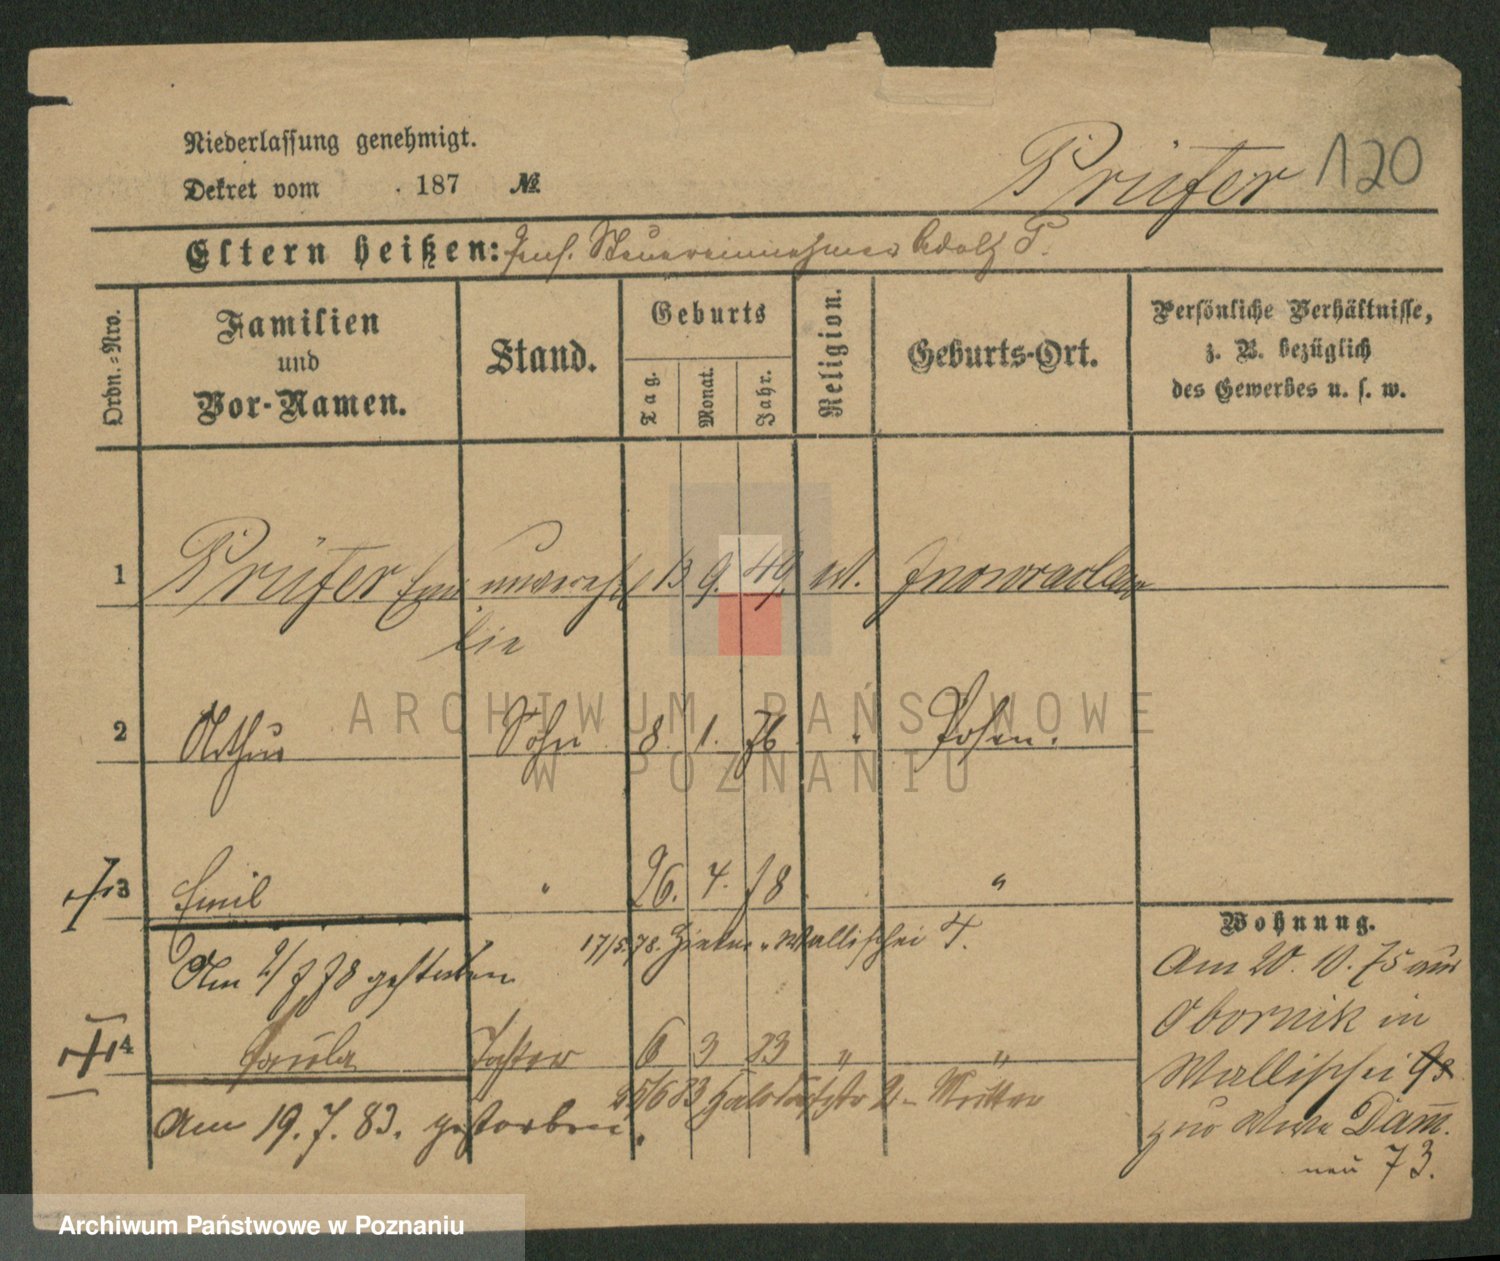 Niederlassung genehmigt.
Dekret vom . 187 №
Prüfer 120
Eltern heißen: Steuereinnehmer Adolf P.
Ordn.-Nro.
Familien
und
Vor-Namen.
Stand.
Geburts
Tag.
Monat.
Jahr.
Religion.
Geburts-Ort.
Persönliche Verhältnisse,
z. B. bezüglich
des Gewerbes u. s. w.
1 Prüfer Emi unverehl 13 9. 49. ev. Inowraclaw
lie
2 Arthur Sohn 8. 1. 76 " Posen.
3 Emil " 26. 4. 78 "
17/5.78. Wallischei
Am 2/7 78 gestorben
4 Paula Tochter 6 3 83 " "
25/6 83 2 - Mutter
Am 19. 7. 83. gestorben.
Wohnung.
Am 20. 10. 75 aus
Obornik in
Wallischei 93
zur Wwe Dam̅.
neu 73.
ARCHIWUM PAŃSTWOWE
W POZNANIU
Archiwum Państwowe w Poznaniu